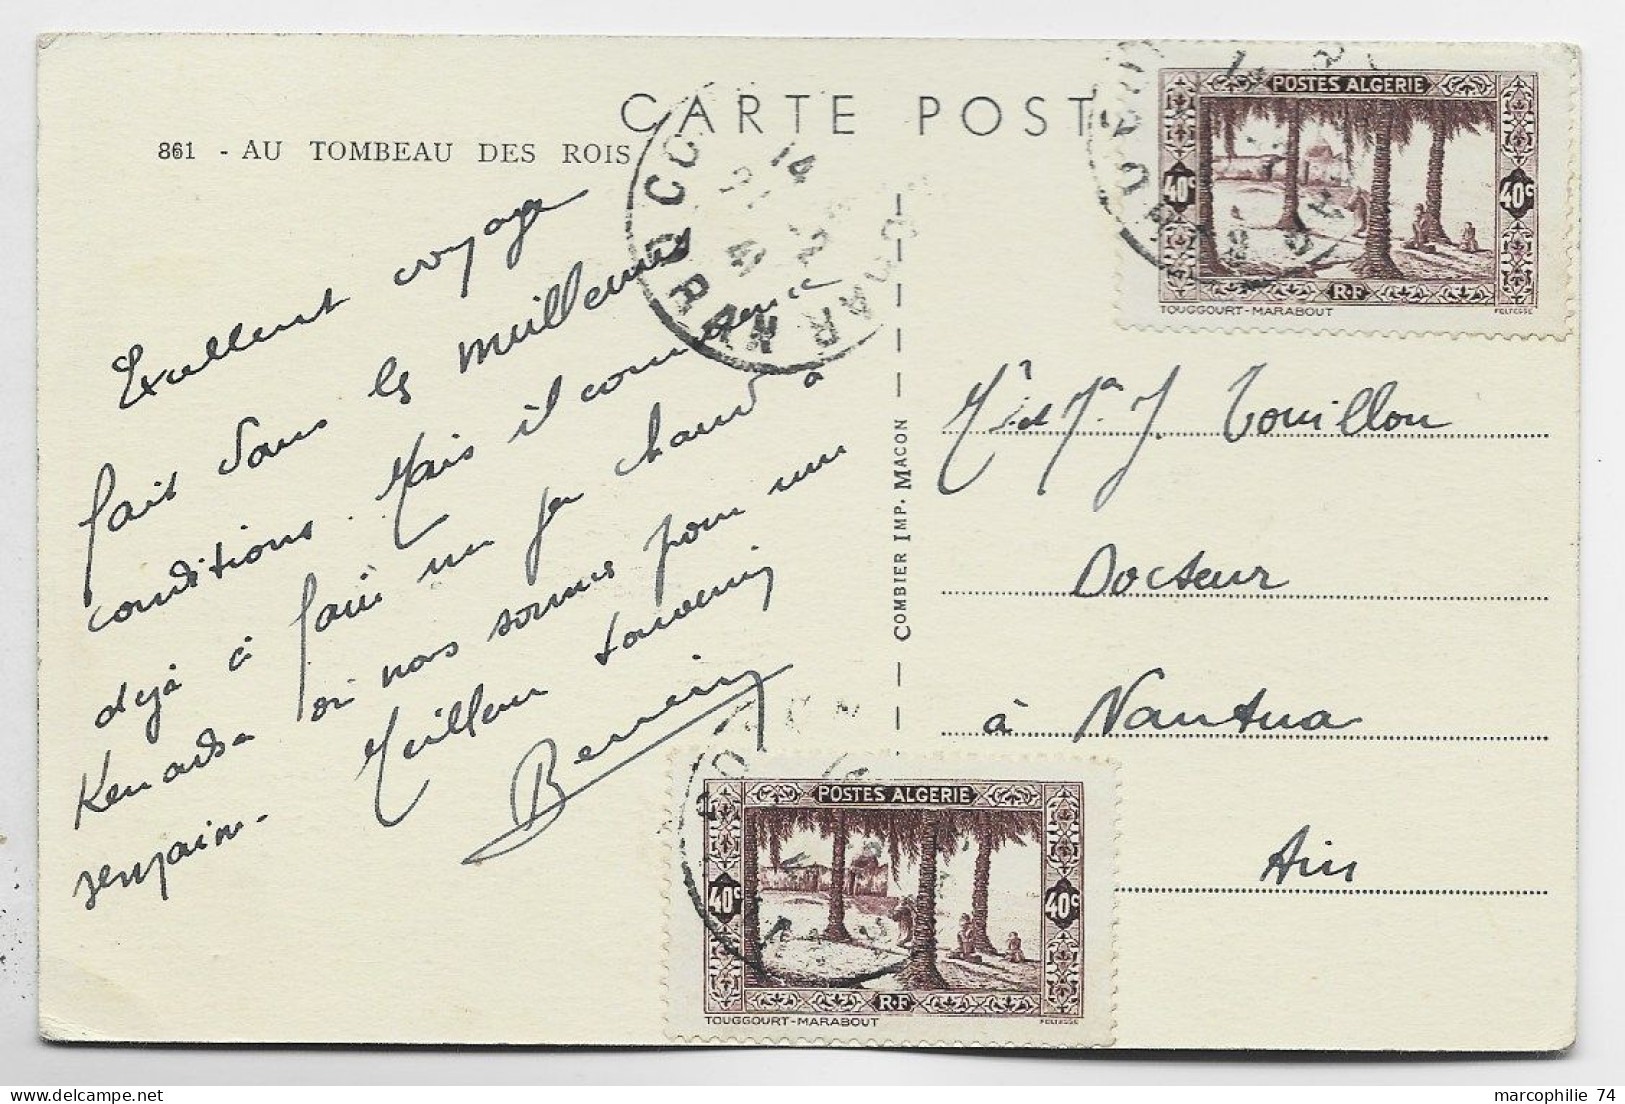 CARTE POST
861 - AU TOMBEAU DES ROIS
Excellent voyage
fait dans les meilleures
conditions. Mais il commence
déjà à faire un peu chaud à
Kenadsa où nous sommes pour une
semaine. Meilleur souvenir
COMBIER IMP. MACON
Mr et Me J. Touillon
Docteur
à Nantua
Ain
POSTES ALGERIE
40c 40c
RF
TOUGGOURT-MARABOUT
POSTES ALGERIE
40c 40c
RF
TOUGGOURT-MARABOUT
ORAN
marcophilie 74